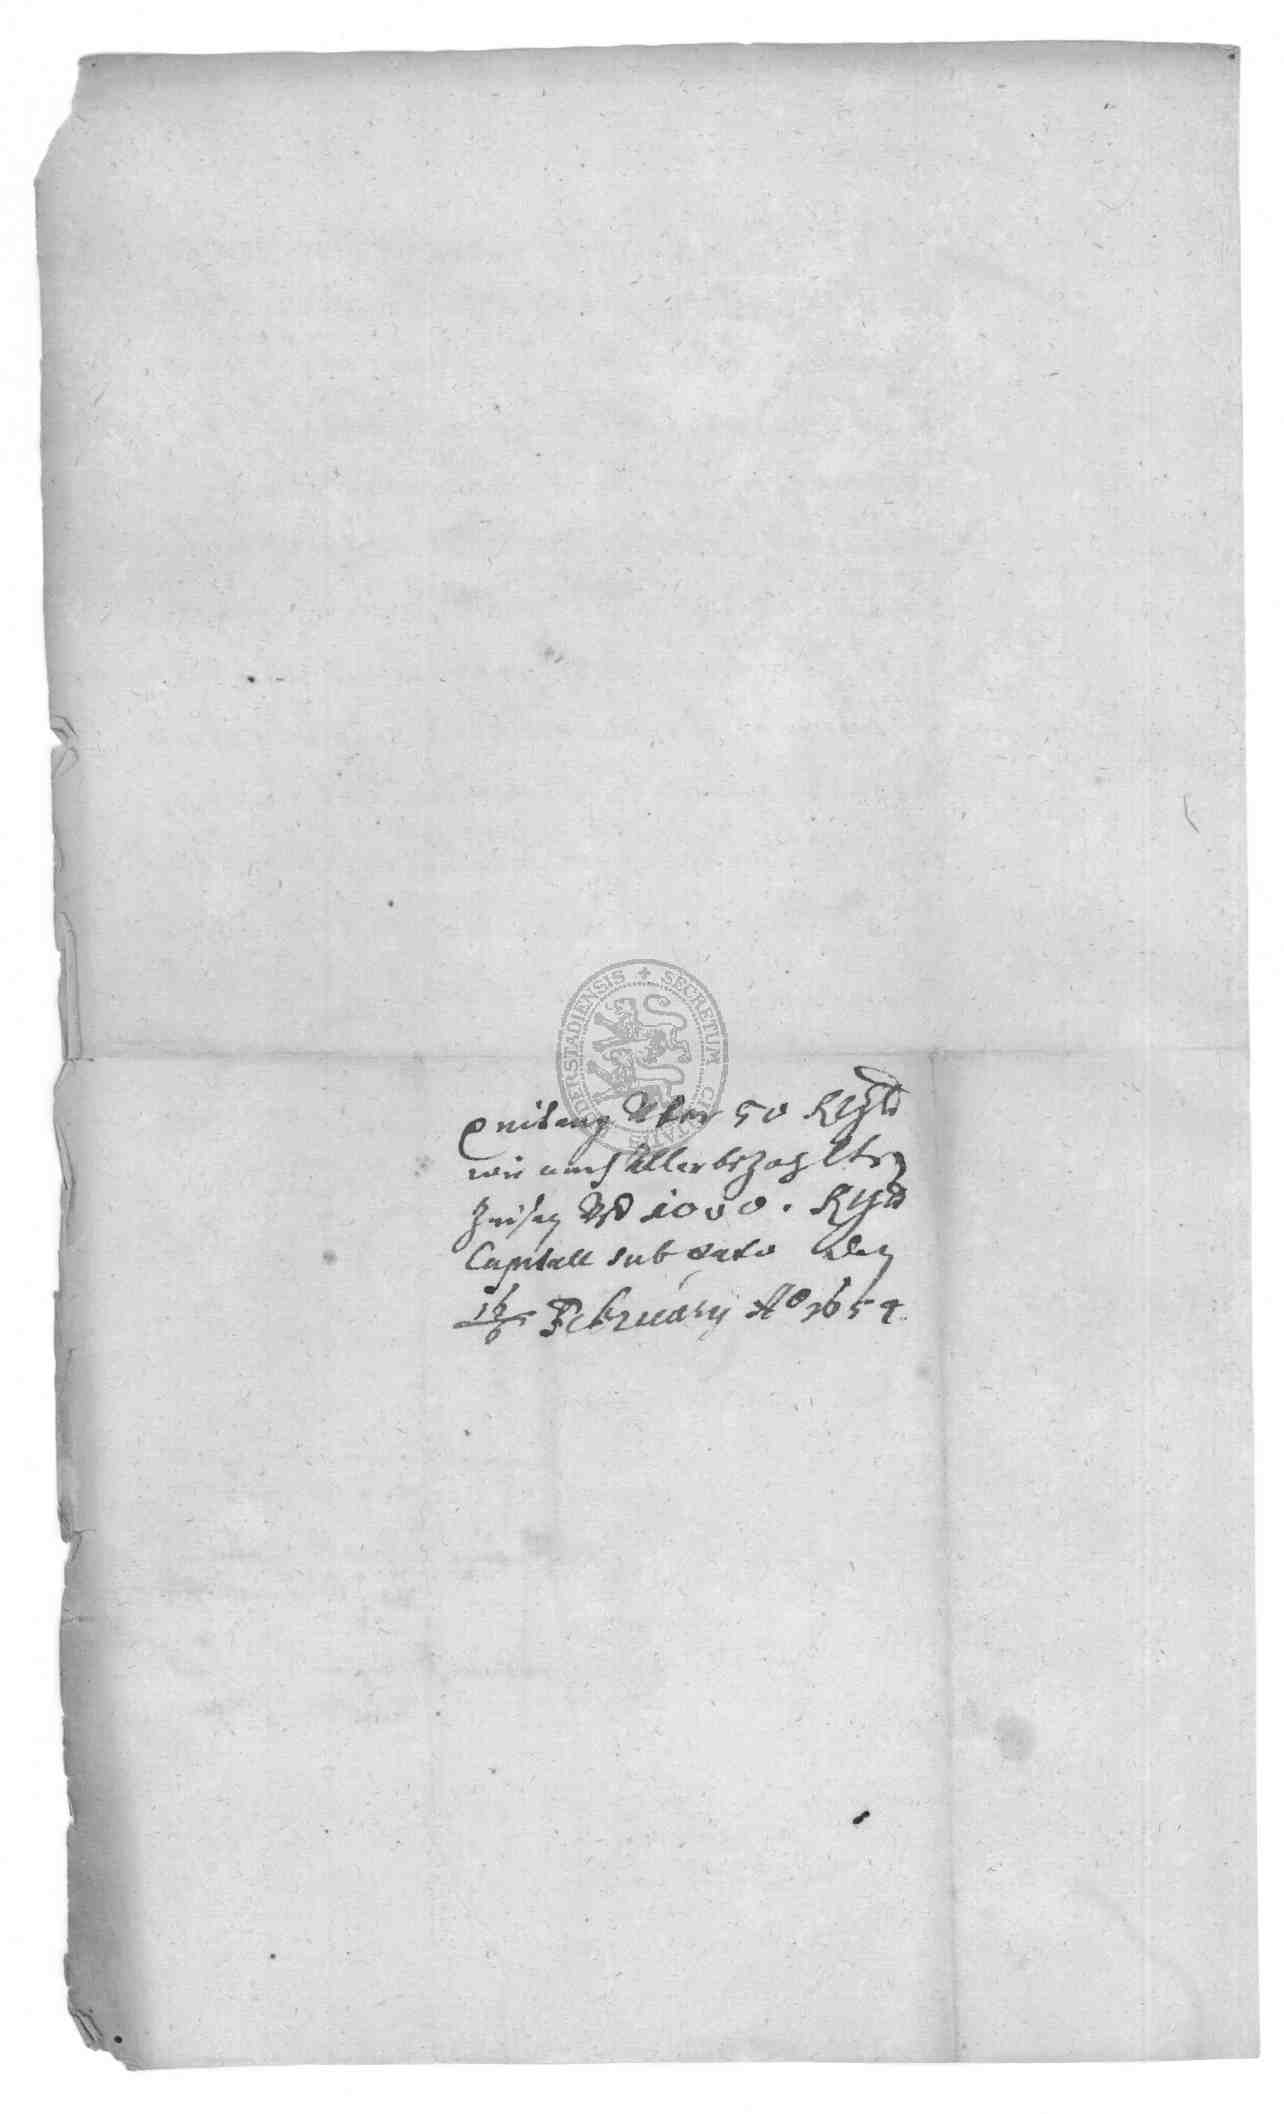 SECRETUM CIVITATIS DUDERSTADIENSIS
Quitung Uber 50 Rthlr
wie auch aller bezahlten
Zinsen
1000. Rthlr
Capitall sub dato den
16/6 February Ao 1654.